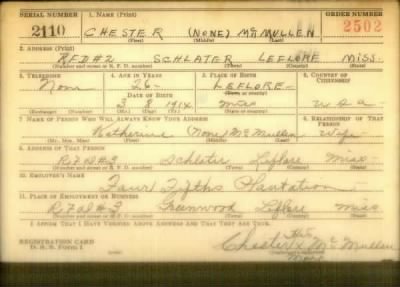 SERIAL NUMBER 1. NAME (Print) ORDER NUMBER
2110 CHESTER (NONE) McMULLEN 2502
(First) (Middle) (Last)
2. ADDRESS (Print)
R.F.D #2 SCHLATER LEFLORE MISS.
(Number and street or R. F. D. number) (Town) (County) (State)
3. TELEPHONE 4. AGE IN YEARS 5. PLACE OF BIRTH 6. COUNTRY OF CITIZENSHIP
None 26 LEFLORE
DATE OF BIRTH (Town or county)
3 8 1914 Miss U S A
(Exchange) (Number) (Mo.) (Day) (Yr.) (State or country)
7. NAME OF PERSON WHO WILL ALWAYS KNOW YOUR ADDRESS 8. RELATIONSHIP OF THAT PERSON
Katherine (None) McMullen Wife
(Mr., Mrs., Miss) (First) (Middle) (Last)
9. ADDRESS OF THAT PERSON
R.F.D #3 Schlater Leflore Miss
(Number and street or R. F. D. number) (Town) (County) (State)
10. EMPLOYER'S NAME
Four Fifths Plantation
11. PLACE OF EMPLOYMENT OR BUSINESS
R.F.D #3 Greenwood Leflore Miss
(Number and street or R. F. D. number) (Town) (County) (State)
I AFFIRM THAT I HAVE VERIFIED ABOVE ANSWERS AND THAT THEY ARE TRUE.
REGISTRATION CARD His
D. S. S. Form 1 Chester X McMullen
Mark